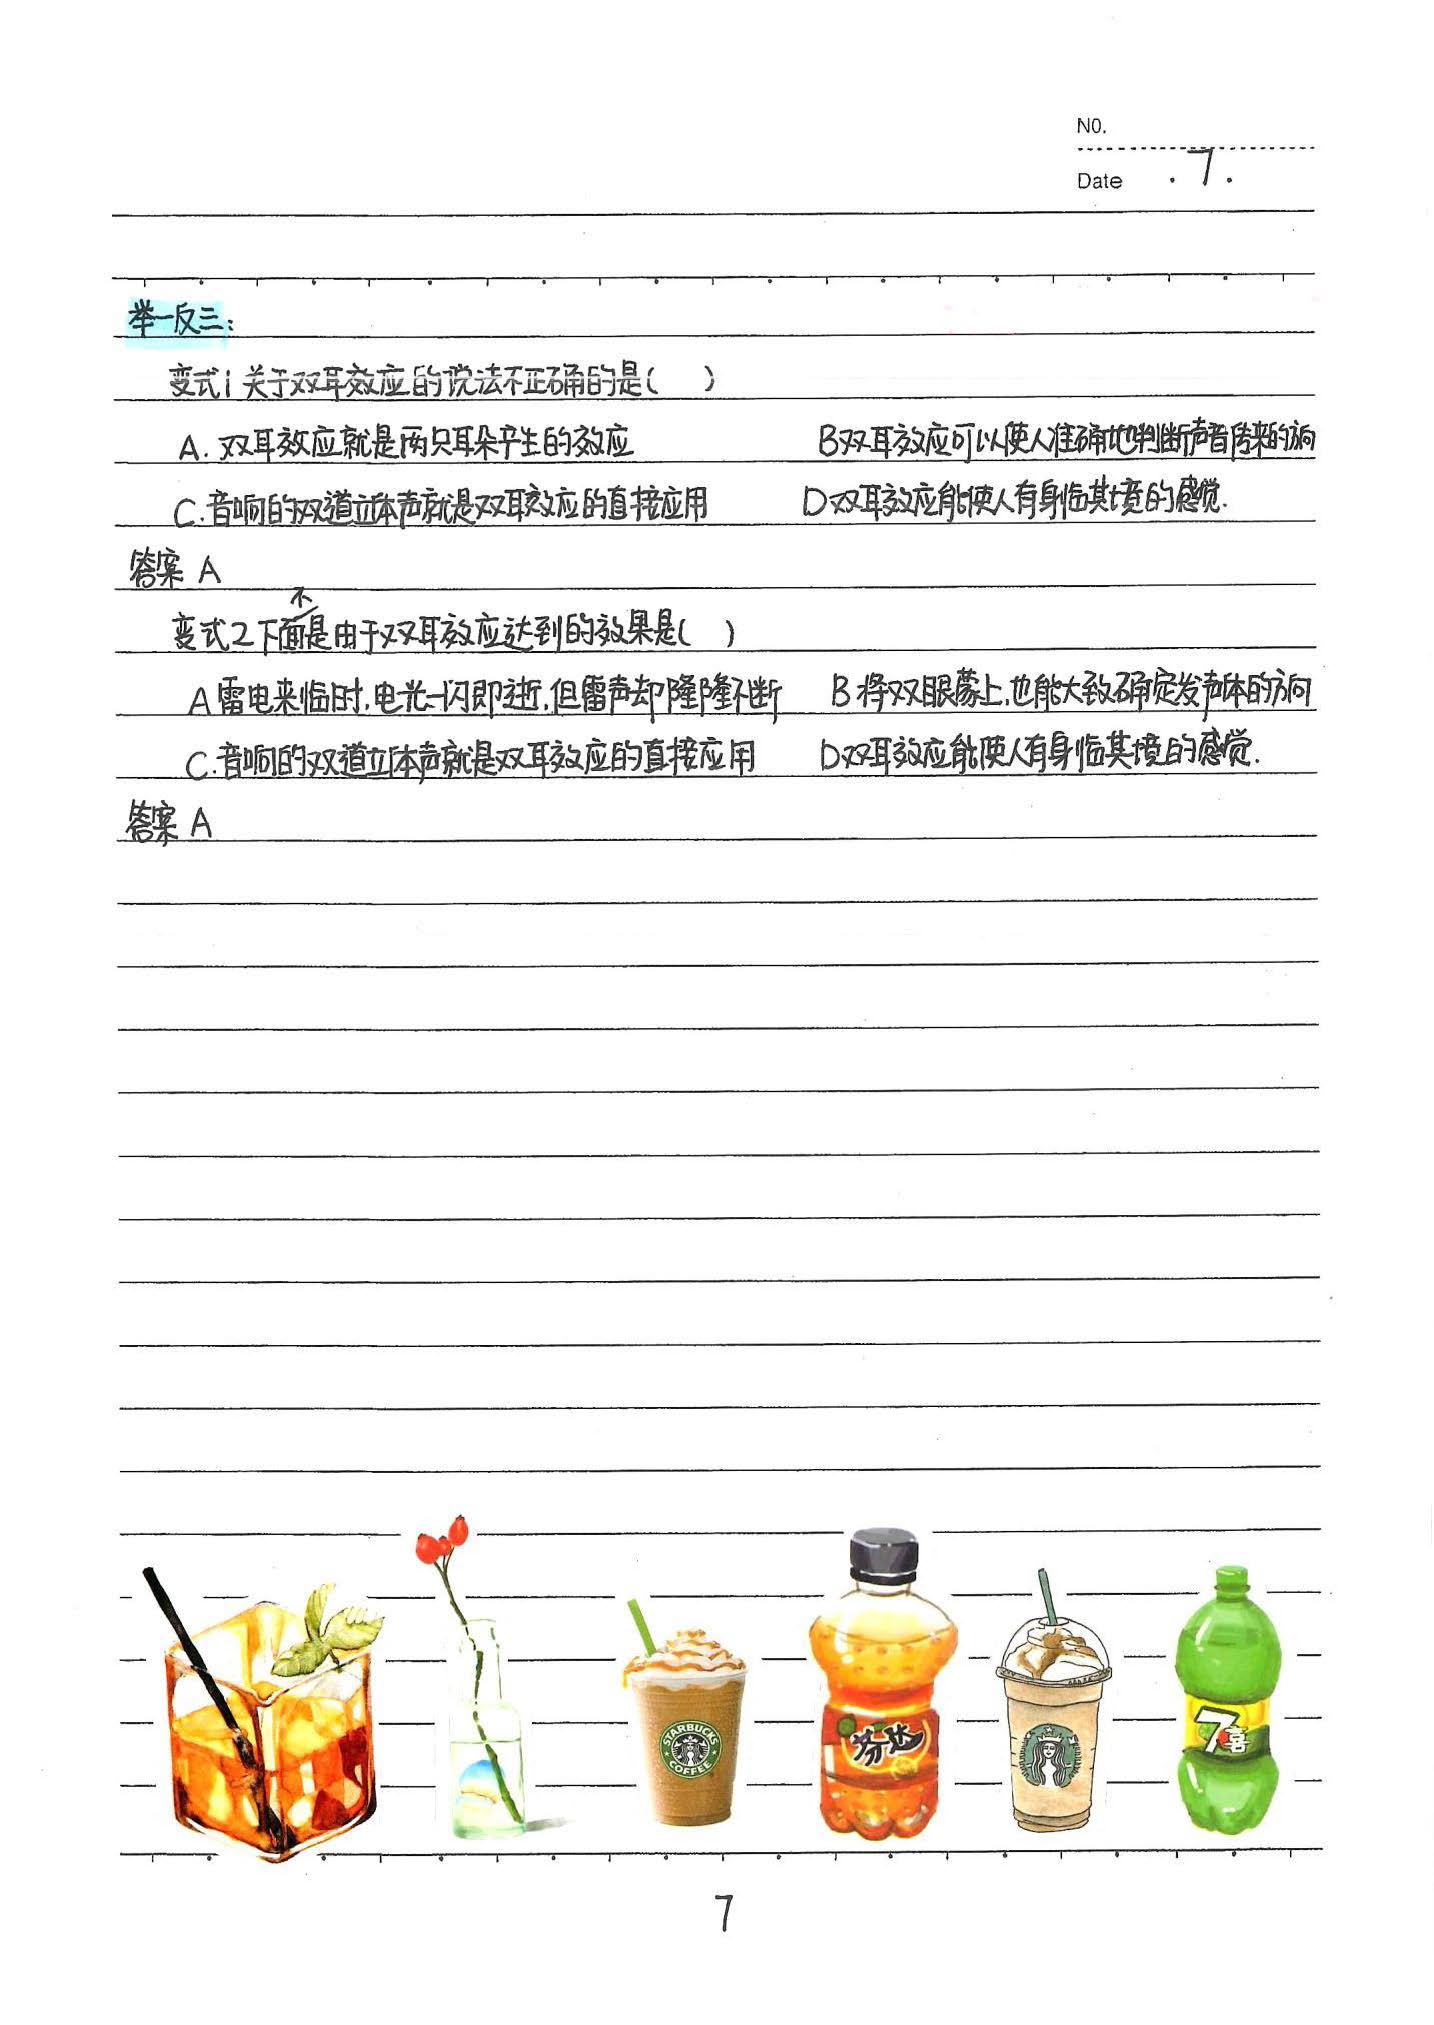 NO.
Date .7.
举一反三:
变式1 关于双耳效应的说法不正确的是( )
A. 双耳效应就是两只耳朵产生的效应 B双耳效应可以使人准确地判断声音传来的方向
C.音响的双道立体声就是双耳效应的直接应用 D双耳效应能使人有身临其境的感觉.
答案 A
不
变式2下面是由于双耳效应达到的效果是( )
A雷电来临时,电光一闪即逝,但雷声却隆隆不断 B将双眼蒙上,也能大致确定发声体的方向
C.音响的双道立体声就是双耳效应的直接应用 D双耳效应能使人有身临其境的感觉.
答案 A
STARBUCKS
COFFEE
芬达
7喜
7